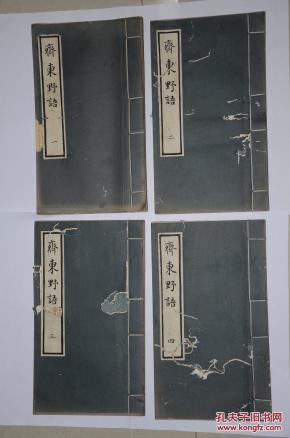 齊東野語 一
齊東野語 二
齊東野語 三
齊東野語 四
孔夫子旧书网
www.kongfz.com